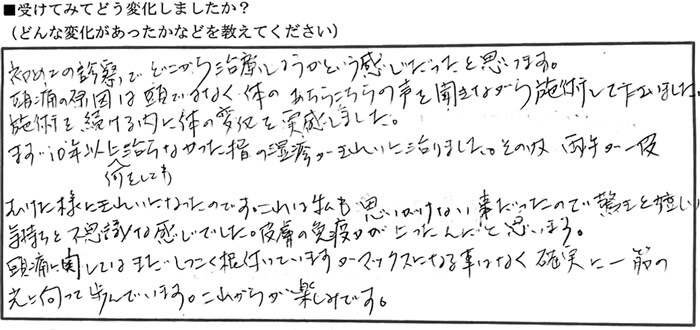 ■受けてみてどう変化しましたか？
（どんな変化があったかなどを教えてください）
初めての診察でどこから治療しようかという感じだったと思います。
頭痛の原因は頭ではなく体のあちらこちらの声を聞きながら施術して下さいました。
施術を続ける内に体の変化を実感しました。
まず10年以上治らなかった指の湿疹がきれいに治りました。その後 両手が一皮
何をしても
むけた様にきれいになったのです。これは私も思いがけない事だったので驚きと嬉しい
気持ちと不思議な感じでした。皮膚の免疫力が上ったんだと思います。
頭痛に関してはまだしつこく根付いていますがマックスになる事はなく確実に一筋の
光に向って歩んでいます。これからが楽しみです。